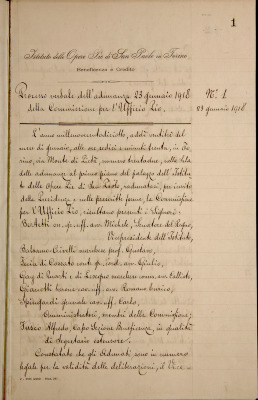 1
Istituto delle Opere Pie di San Paolo in Torino
Beneficenza e Credito
Processo verbale dell'adunanza 23 gennaio 1918
della Commissione per l'Ufficio Pio.
N.° 1
23 gennaio 1918
L'anno millenovecentodiciotto, addì ventitre del
mese di gennaio, alle ore sedici e minuti trenta, in To-
rino, via Monte di Pietà, numero trentadue, nella sala
delle adunanze al primo piano del palazzo dell'Istitu-
to delle Opere Pie di San Paolo, radunatasi, per invito
della Presidenza e nelle prescritte forme, la Commissione
per l'Ufficio Pio, risultano presenti i Signori:
Bertetti avv. Michele, Senatore del Regno,
Vicepresidente dell'Istituto,
Balsamo Crivelli marchese prof. Gustavo,
Feria di Cossato conte
marchese comm. avv.
barone avv. Romano
Carlo,
Amministratori, membri della Commissione;
Fusco Alfredo, Capo Sezione Beneficenza, in qualità
di Segretario estensore.
Constatato che gli Adunati sono in numero
legale per la validità delle deliberazioni, il Vice-